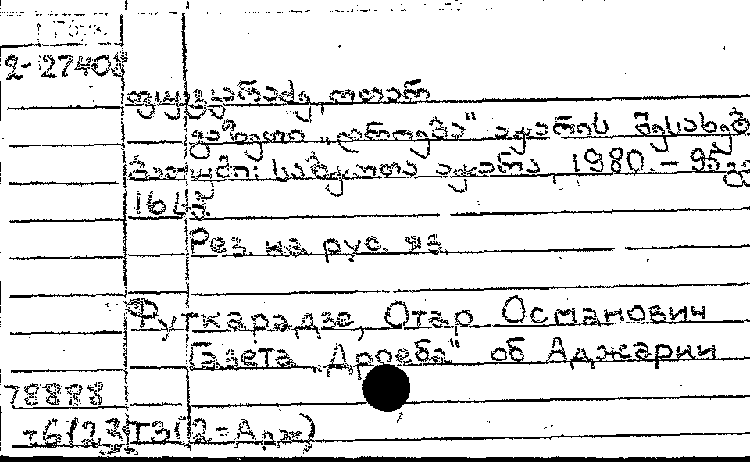 2-27408
ფუტკარაძე, ოთარ
გაზეთი „დროება“ აჭარის შესახებ
ბათუმი: საბჭოთა აჭარა, 1980. – 95 გვ
16 სმ
Рез. на рус. яз.
Футкарадзе, Отар Османович
Газета „Дроеба“ об Аджарии
78888
т612.3(2=Адж)